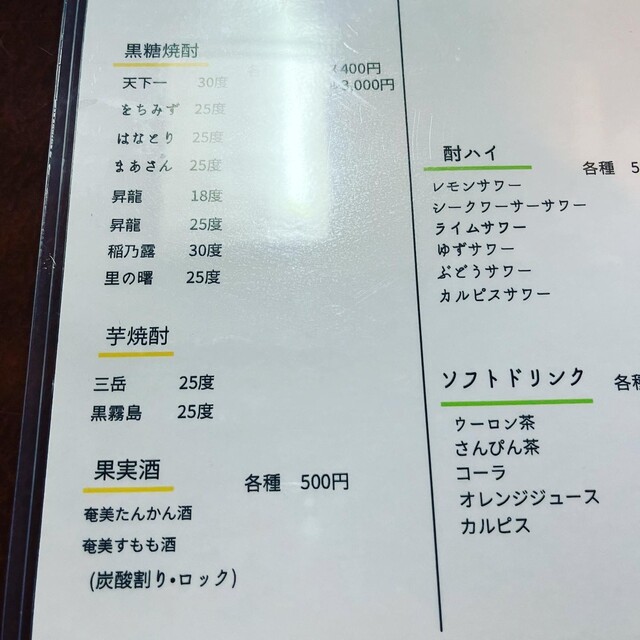 黒糖焼酎
400円
3,000円
天下一 30度
をちみず 25度
はなとり 25度
まあさん 25度
昇龍 18度
昇龍 25度
稲乃露 30度
里の曙 25度
芋焼酎
三岳 25度
黒霧島 25度
果実酒
各種 500円
奄美たんかん酒
奄美すもも酒
(炭酸割り・ロック)
酎ハイ
各種 5
レモンサワー
シークワーサーサワー
ライムサワー
ゆずサワー
ぶどうサワー
カルピスサワー
ソフトドリンク
各種
ウーロン茶
さんぴん茶
コーラ
オレンジジュース
カルピス